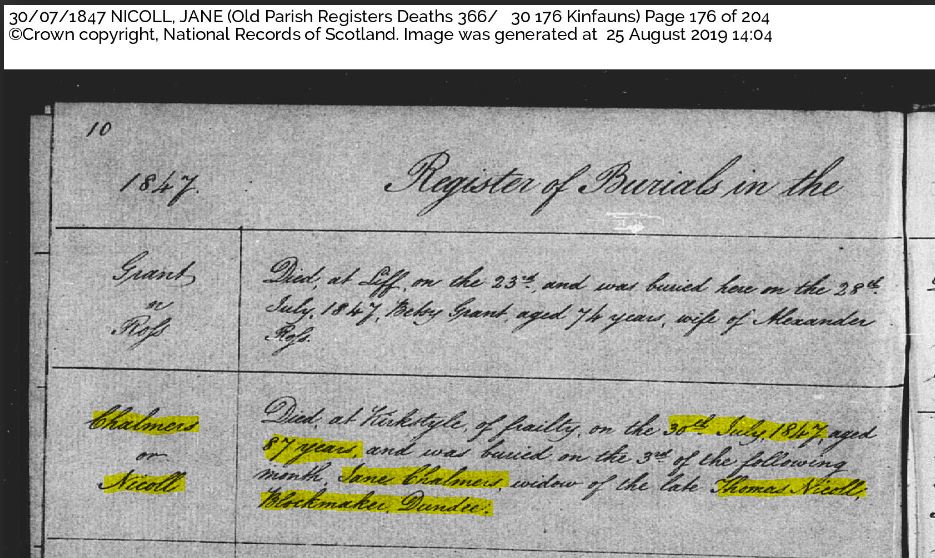 30/07/1847 NICOLL, JANE (Old Parish Registers Deaths 366/ 30 176 Kinfauns) Page 176 of 204
©Crown copyright, National Records of Scotland. Image was generated at 25 August 2019 14:04
10
1847.
Register of Burials in the
Grant
or
Ross
Died, at Liff, on the 23rd, and was buried here on the 28th
July, 1847, Betsy Grant, aged 74 years, wife of Alexander
Ross.
Chalmers
or
Nicoll
Died, at Kirkstyle, of frailty, on the 30th July, 1847, aged
87 years, and was buried on the 3rd of the following
month, Jane Chalmers, widow of the late Thomas Nicoll,
Blockmaker, Dundee.